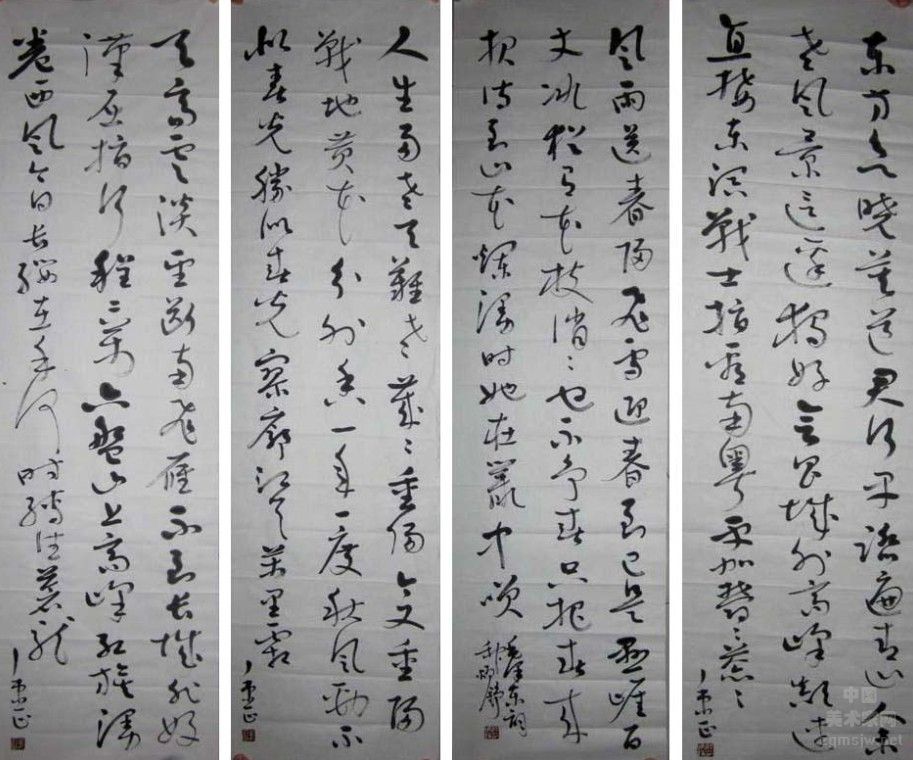 东方欲晓莫道君行早踏遍青山人未
老风景這邊独好会昌城外高峰颠连
直接东溟戰士指看南粤更加欝〻葱〻
风雨送春归飞雪迎春到已是悬崖百
丈冰犹有花枝俏〻也不争春只把春来
报待到山花烂漫时她在丛中笑
毛泽东词
人生易老天難老岁〻重陽今又重陽
戰地黄花分外香一年一度秋风劲不
似春光勝似春光寥廓江天萬里霜
天高云淡望断南飞雁不到长城非好
漢屈指行程二萬六盘山上高峰红旗漫
卷西风今日长缨在手何时缚住苍龙
中国
美术家网